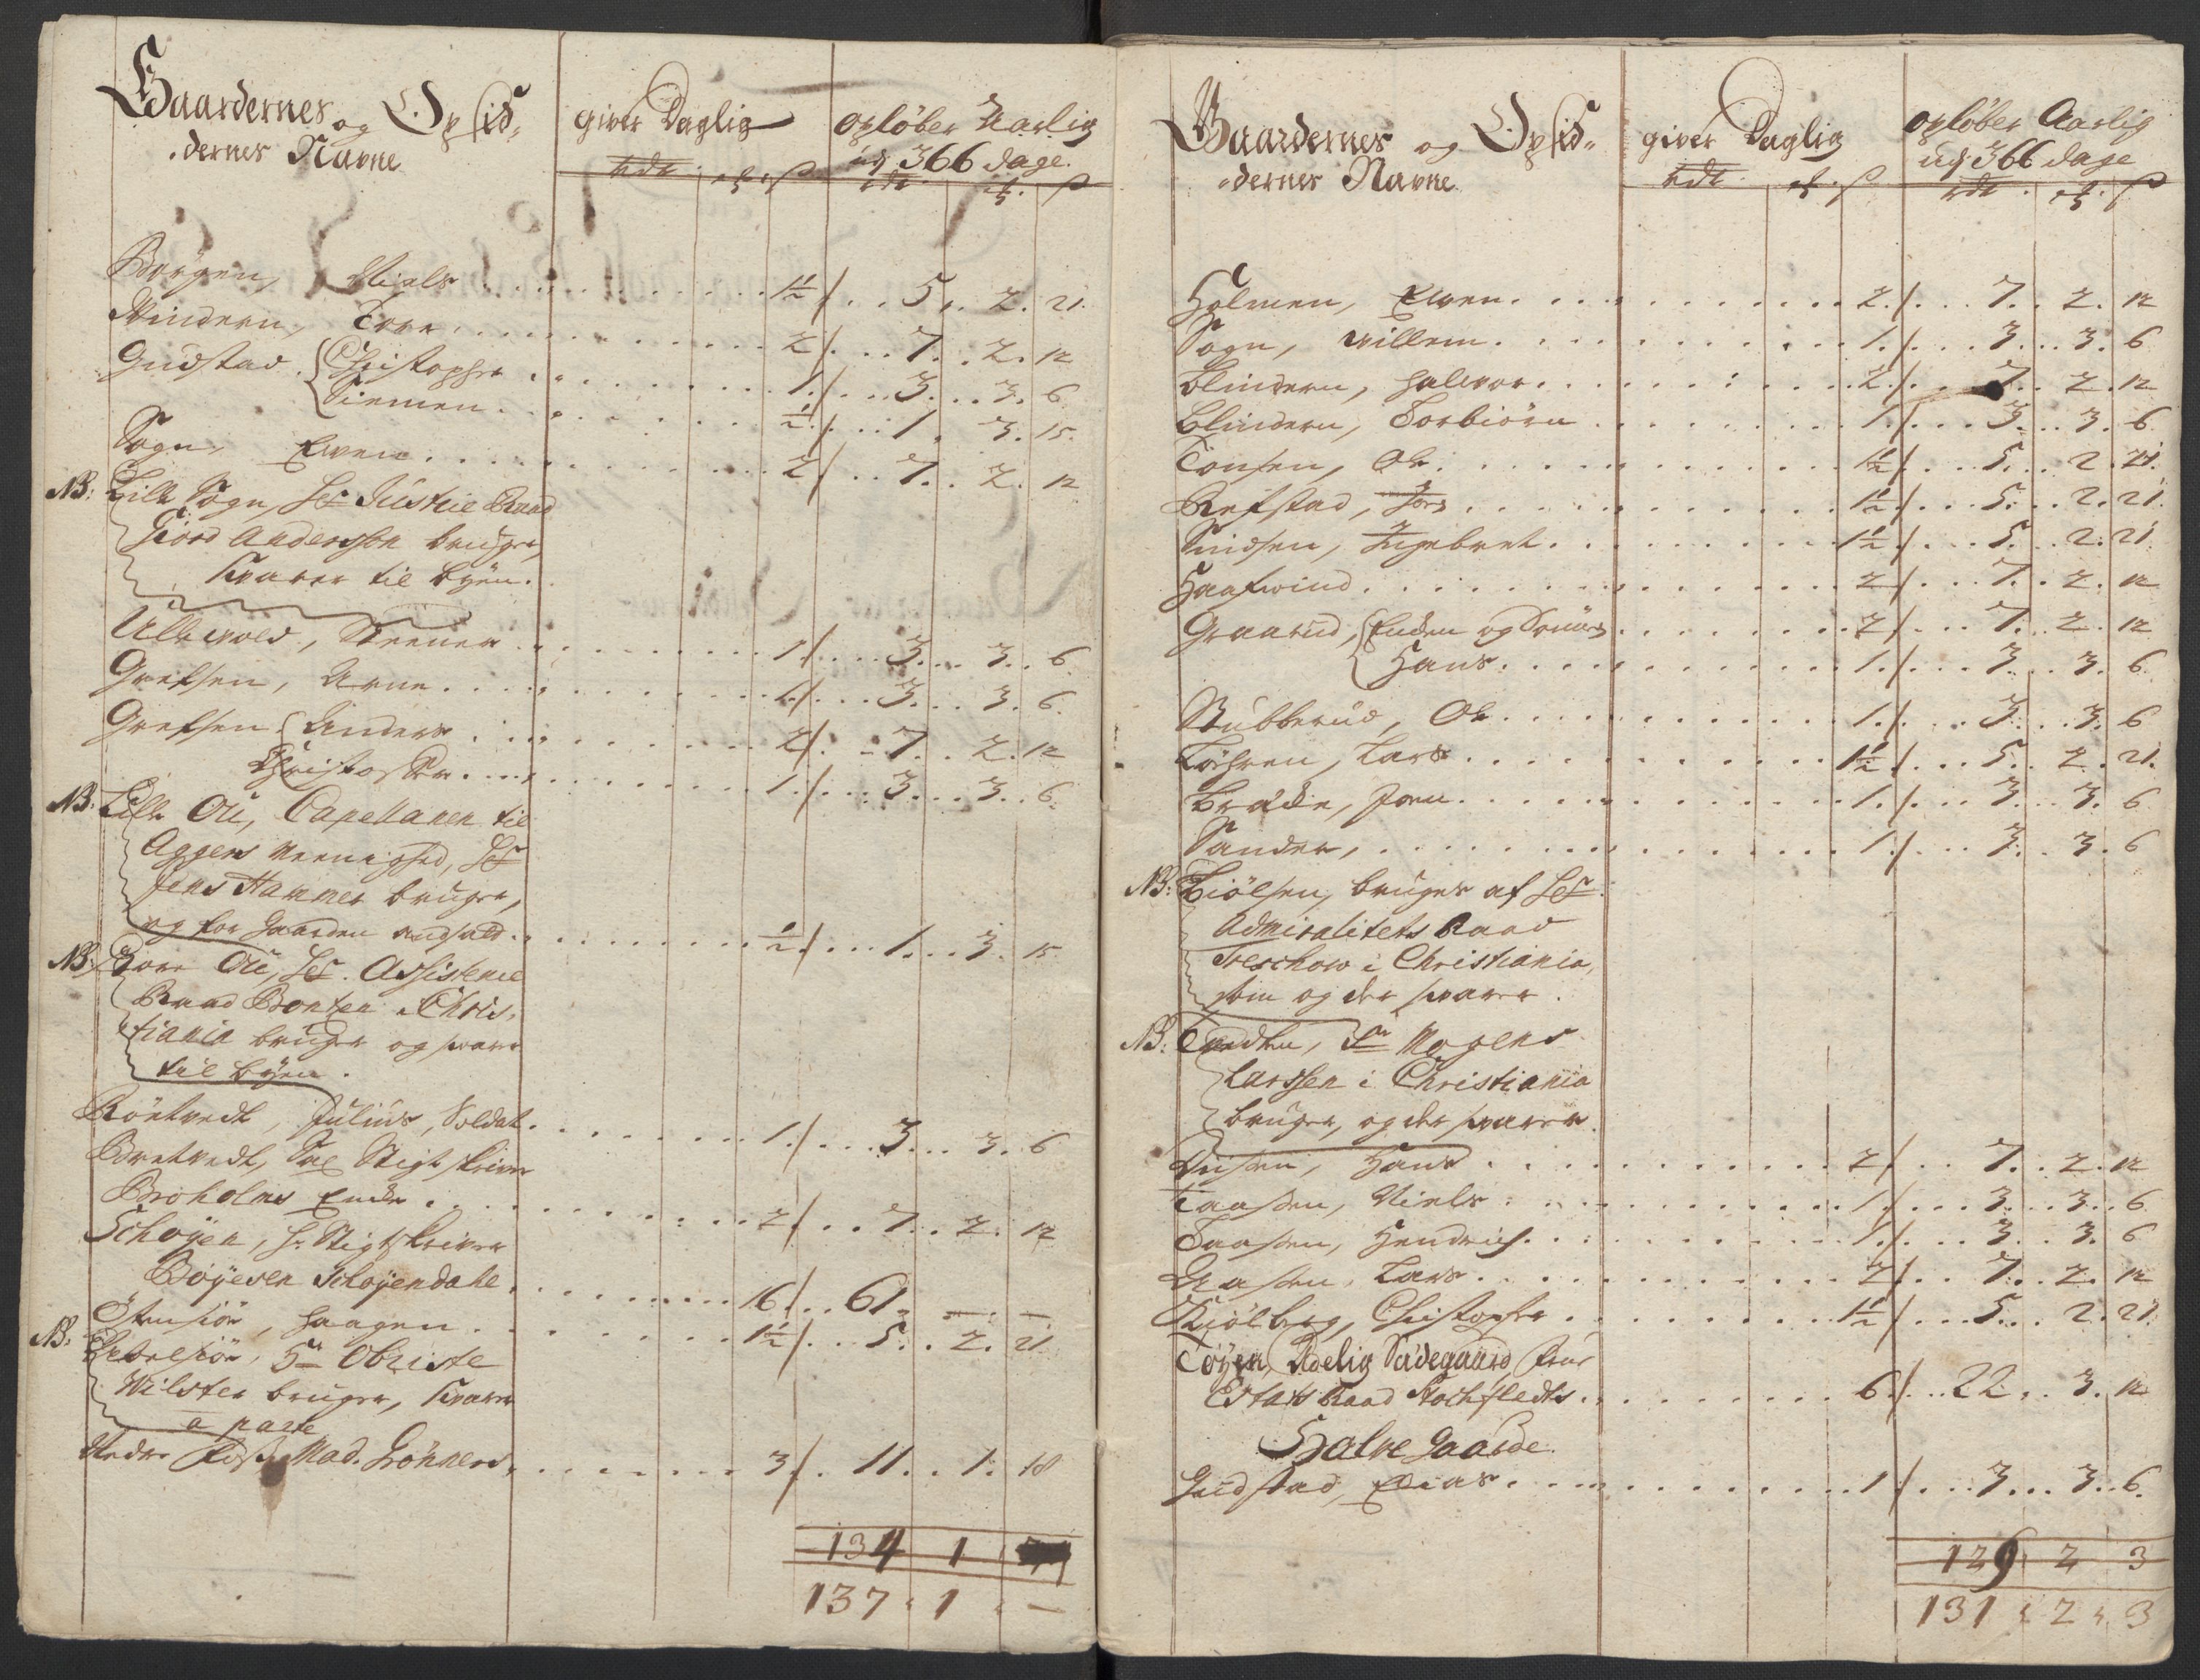 Gaardernes og Opsid-
dernes Navne
giver Daglig
rdr ₰ s
opløber Aarlig
udj 366 dage.
rdr ₰ s
Borgen, Niels 1½ /. 5. 2. 21.
Vindern, Tore 2 /. 7. 2. 12
Gudstad Christopher 1. /. 3. 3. 6
Siemen ½ /. 1. 3. 15.
Sogn, Even 2 /. 7. 2. 12
NB: Lille Sogn, Hr Justice Raad
Giord Anderssøn bruger,
svarer til byen.
Ullevold, Steener 1 /. 3. 3. 6
Grefsen, Arne 1. /. 3. 3. 6.
Grefsen Anders 2 /. 7. 2. 12
Christopher 1. /. 3. 3. 6.
NB: Lille Ou, Capellanen til
Aggers Meenighed, Hr
Jens Hammer bruger,
og for Gaarden andsætt ½ /. 1. 3. 15
NB: Store Ou, Hr. Assistence
Raad Bonken i Chris-
tiania bruger og svarer
til byen.
Röetvedt, Julius, Soldat 1. /. 3. 3. 6
Bretvedt, Sal Stigtskriver
Broholms Encke 2 /. 7. 2. 12
Schøyen, Hr Stigtskriver
Böyesen Schøyendahl 16. /. 61 — —
Östensiöe, Haagen 1½ /. 5. 2. 21
NB: Hetelsiöe, Hr Obriste
Wilster bruger, svarer
a parte
Nedre Foss, Mad. Grönners 3 /. 11. 1. 18
134 1
137 1 —
Gaardernes og Opsid-
dernes Navne
giver Daglig
rdr ₰ s
opløber Aarlig
udj 366 dage
rdr ₰ s
Holmen, Even 2. /. 7. 2. 12
Sogn, Willem 1. /. 3. 3. 6
Blindern, Halvor 2. /. 7. 2. 12
Blindern, Torbiörn 1. /. 3. 3. 6
Tonsen, Ole 1½ /. 5. 2. 21.
Refstad, Jörs 1½ /. 5. 2. 21.
Sinsen, Ingebret 1½ /. 5. 2. 21
Haswind 2 /. 7. 2. 12
Graarud, Enken og 2 /. 7. 2. 12
Hans 1. /. 3. 3. 6
Stubberud, Ole 1. /. 3. 3. 6
Löhren, Lars 1½ /. 5. 2. 21.
Bråten, Joen 1. /. 3. 3. 6
Sander, 1. /. 3. 3. 6
NB: Biölsen, bruges af Hr
Admiralitets Raad
Treschow i Christiania,
som og der svarer.
NB: Tveedten, Sr Mogens
Larssen i Christiania
bruger, og der svarer.
Disen, Hans 2 /. 7. 2. 12
Taasen, Niels 1. /. 3. 3. 6
Taasen, Hendrich 1. /. 3. 3. 6
Aasen, Lars 2 /. 7. 2. 12
Kiölberg, Christopher 1½ /. 5. 2. 21.
Töyen, Adelig Sædegaard, Frue
Etats Raad Stockfledts 6. /. 22. 3. 12
Halve Gaarde.
Gudstad, Elias 1 /. 3. 3. 6.
129 2 3
131 2 3